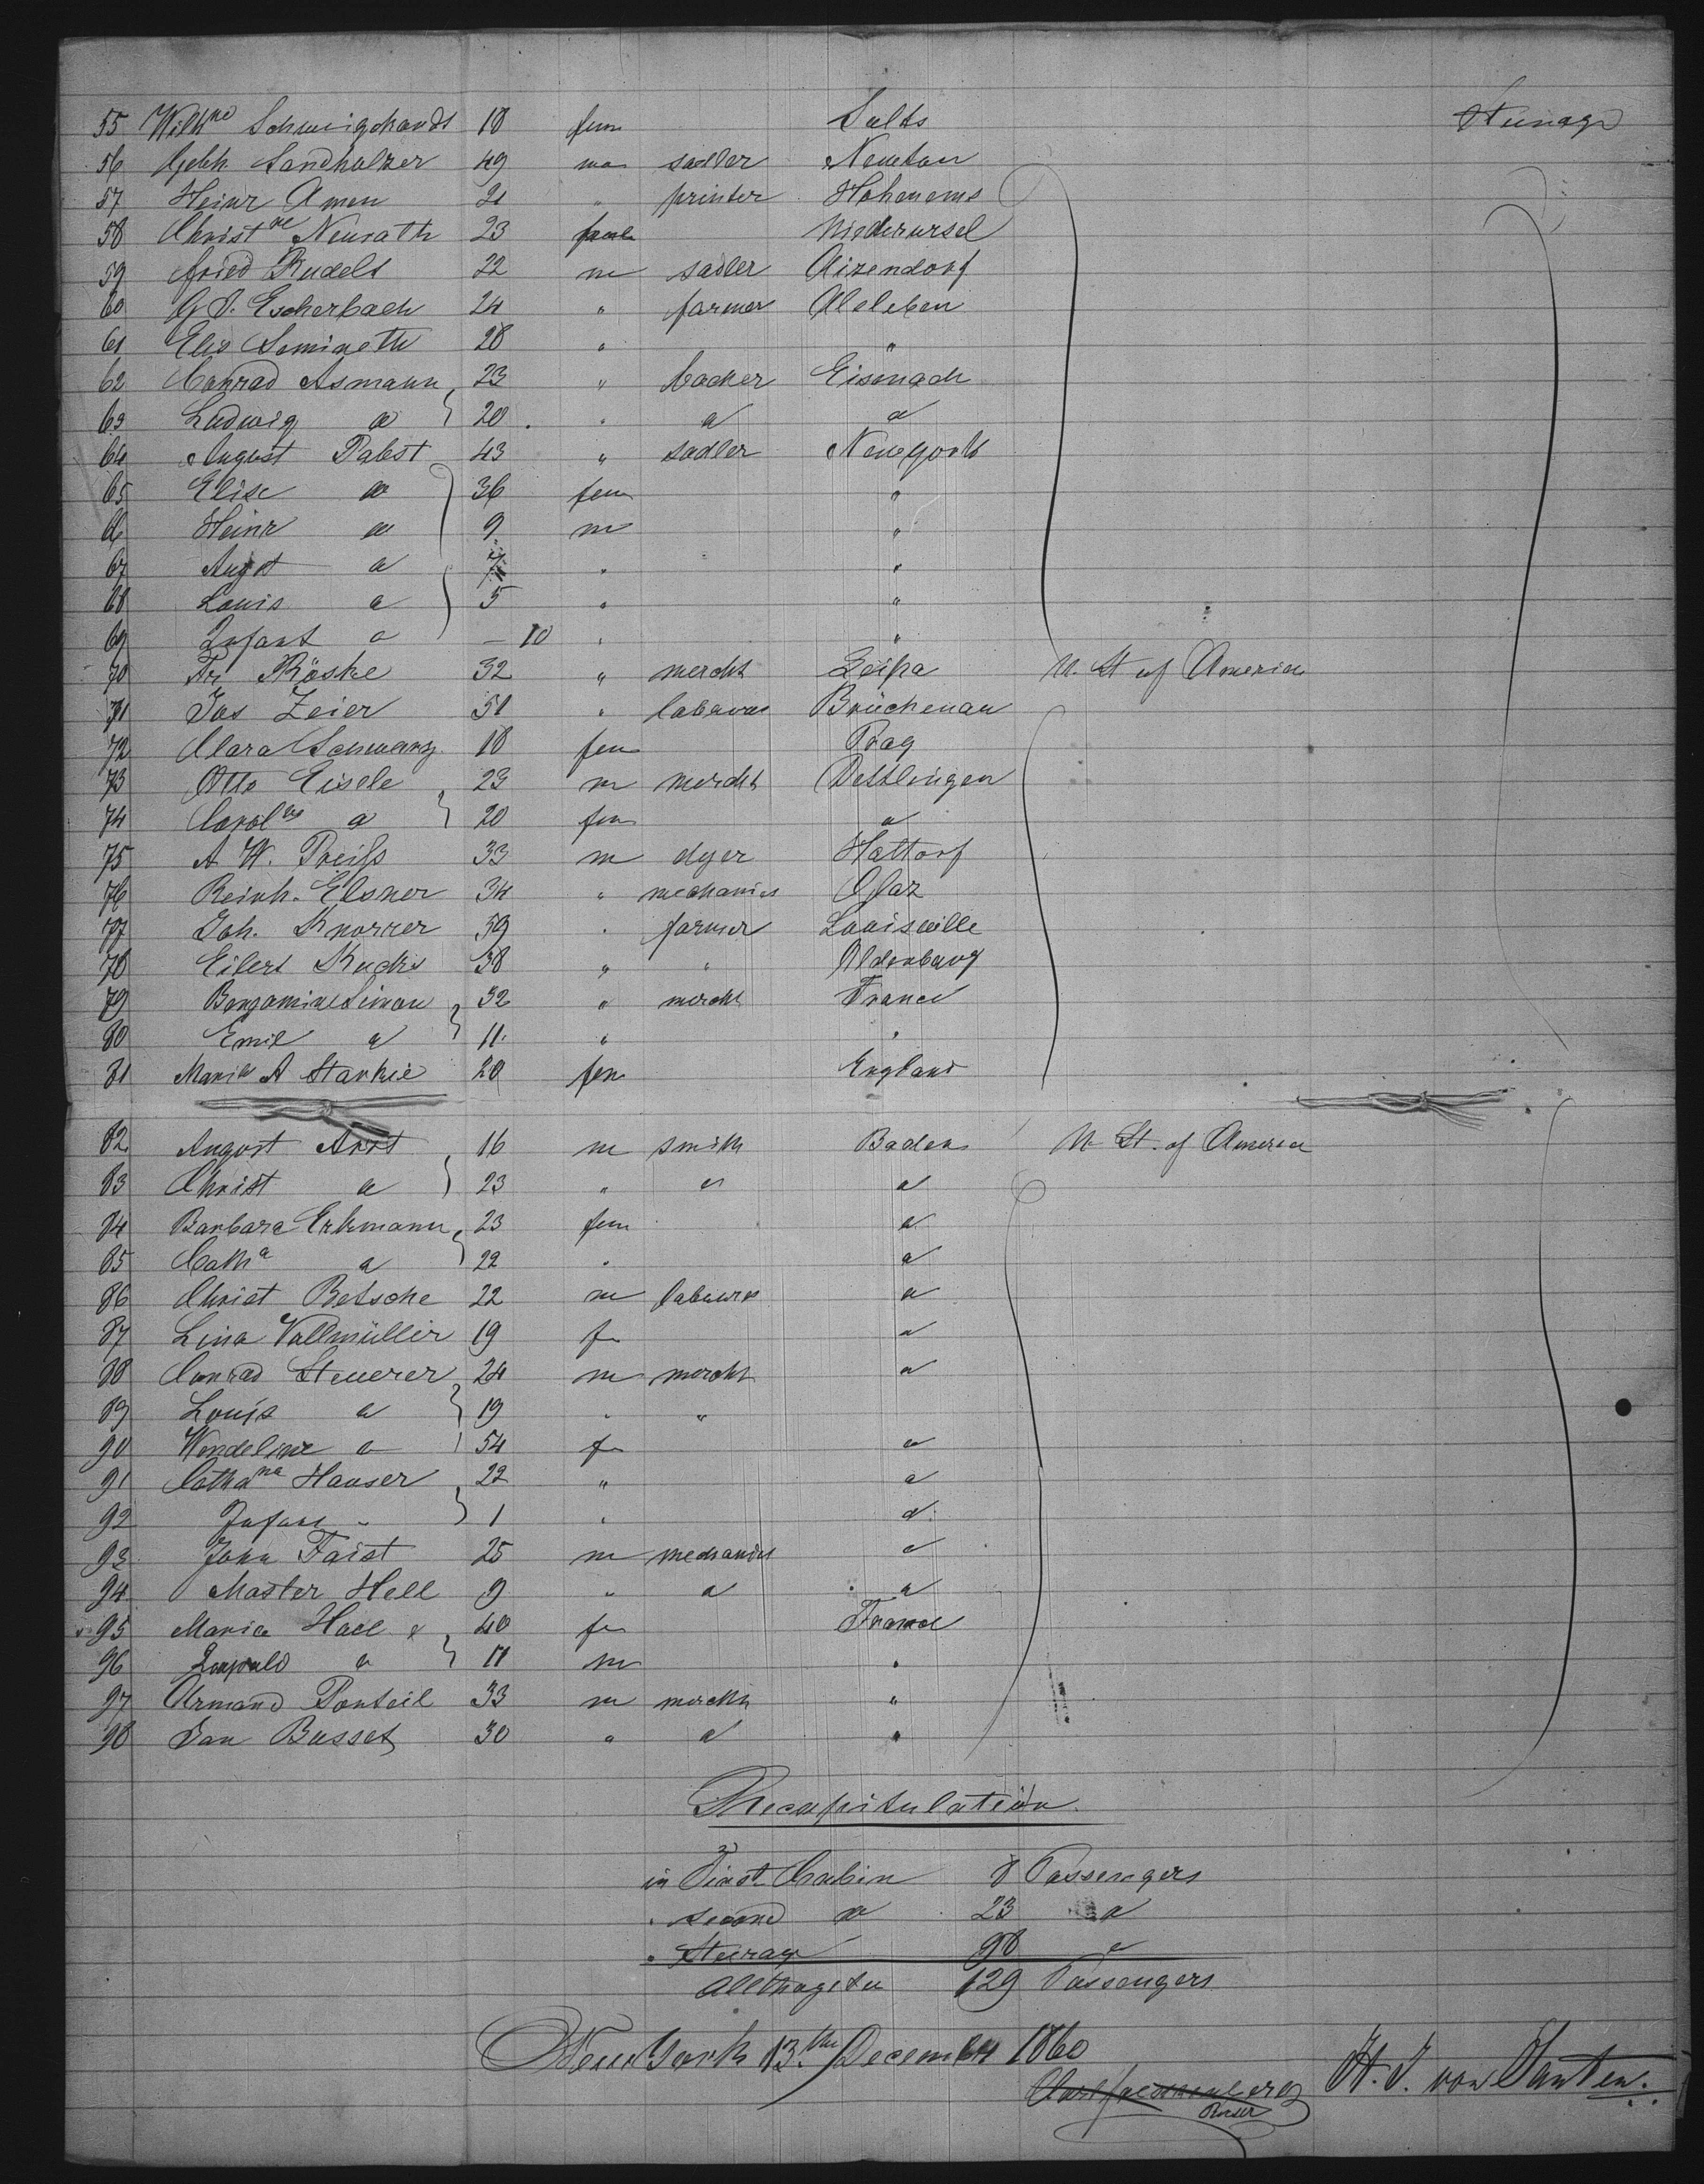 55 Wilh ne Schweighardt 18 fem Sults Steerage
56 Gebh. Sandholzer 49 m sadler Newton
57 Heinr Amen 21 " printer Hohenems
58 Christ ne Neurath 23 femle Niederursel
59 Fried Rudelt 22 m sadler Aizendorf
60 G. S. Escherbach 24 " farmer Aleleben
61 Elis Semineth 28 " "
62 Conrad Asmann 23 " backer Eisenach
63 Ludwig a 20 " a a
64 August Pabst 43 " sadler Newyork
65 Elise a 36 fem "
66 Heinr a 9 m "
67 Augst a 7 " "
68 Louis a 5 " "
69 Infant a — 10 " "
70 Fr Röske 32 " mercht Leipa U. St of America
71 Jos Zeier 51 " labourer Brückenau
72 Clara Schwarz 18 fem Prag
73 Otto Eisele 23 m mercht Dettlingen
74 Carol ne a 20 fem a
75 A. W. Preiss 33 m dyer Hattorf
76 Reinh. Elsner 34 " mechanics
77 Joh. Knorrer 59 " farmer Louisville
78 Eilert 38 " " Oldenburg
79 Benjamin Simon 32 " mercht France
80 Emil a 11 " "
81 Maria A Starkie 20 fem England
82 August Arzt 16 m smith Baden U. St. of America
83 Christ a 23 " a a
84 Barbara Erhmann 23 fem a
85 Cath a a 22 " a
86 Christ Betsche 22 m labourer a
87 Lina Vollmüller 19 fm a
88 Conrad Steuerer 24 m mercht a
89 Louis a 19 " "
90 Wendeline a 54 fm a
91 Catha na Hauser 22 " a
92 Infant " 1 " a
93 John Faist 25 m mechanics a
94 Master Hell 9 " a a
95 Maria Hall 40 fm France
96 Leopold a 11 m "
97 Armand Ponteil 33 m mercht "
98 Jan Busset 30 " a "
Recapitulation
in First Cabin 8 Passengers
" second a 23 a
" Steerage 98 a
Alltogeter 129 Passengers
New York 13. th December 1860
H. J. von Santen.